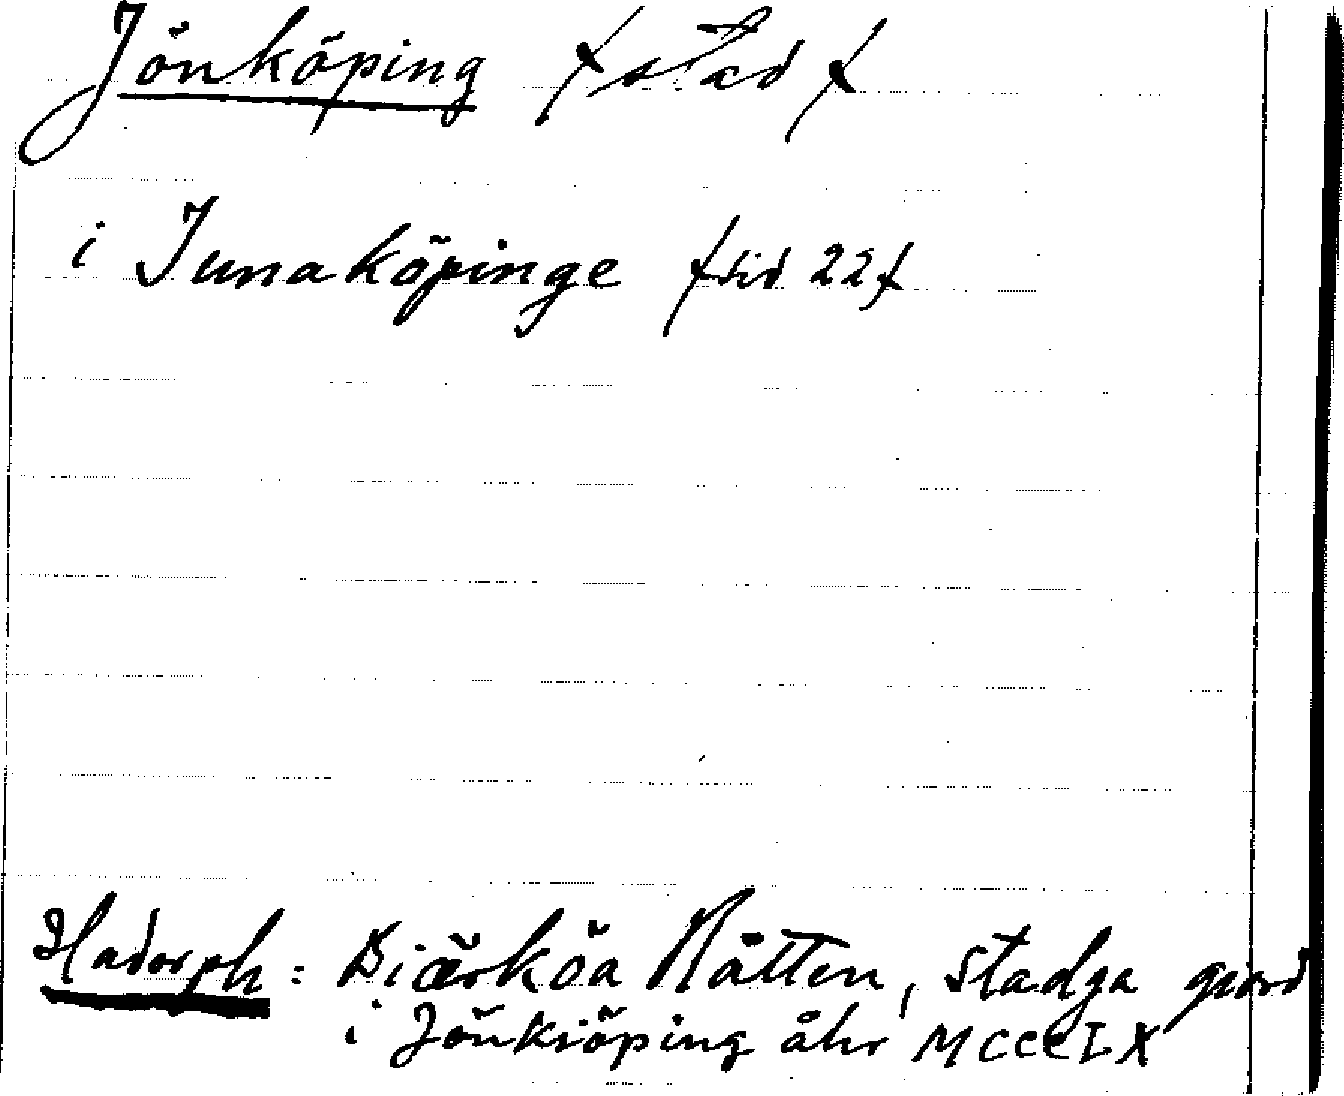 Jönköping /stad/
i Junaköpinge /sid 22/
Hadorph: Biärköa Rätten, Stadga giord
i Jönkiöping åhr MCCCLX